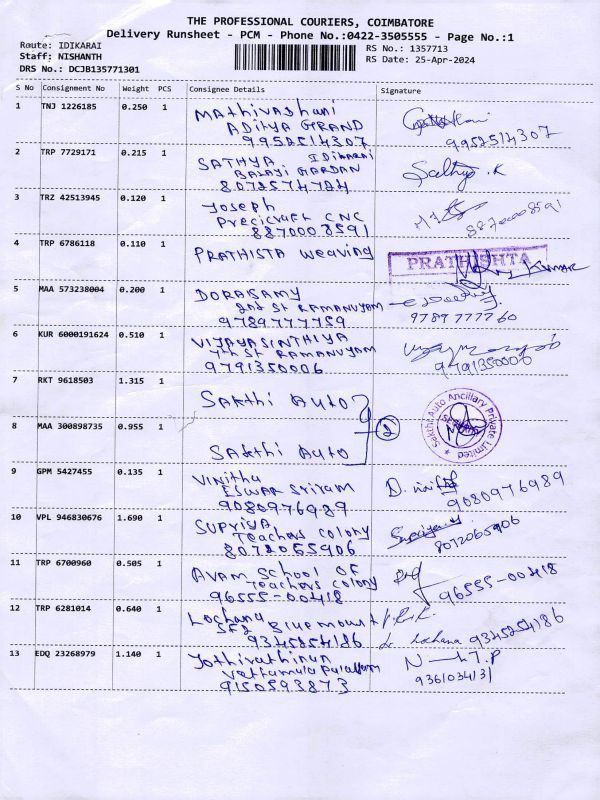 THE PROFESSIONAL COURIERS, COIMBATORE
Delivery Runsheet - PCM - Phone No.:0422-3505555 - Page No.:1
Route: IDIKARAI
Staff: NISHANTH
DRS No.: DCJB135771301
RS No.: 1357713
RS Date: 25-Apr-2024
S No Consignment No Weight PCS Consignee Details Signature
1 TNJ 1226185 0.250 1 Mathivashani
ADitya GRAND
9952514307 9952514307
2 TRP 7729171 0.215 1 SATHYA IDikarai
BALAJI GARDAN
8072574784 Sathya.K
3 TRZ 42513945 0.120 1 Joseph
Precicraft CNC
8870008591 8870008591
4 TRP 6786118 0.110 1 PRATHISTA weaving PRATHISHTA
KUMAR
5 MAA 573238004 0.200 1 DORASAMY
2nd St RAMANUYAM
9789777759 9789777760
6 KUR 6000191624 0.510 1 VIJAYASINTHIYA
7th St RAMANUYAM
9791350006 9791350006
7 RKT 9618503 1.315 1 SAKthi Auto
2
Sakthi Auto Ancillary Private Limited
8 MAA 300898735 0.955 1 SAKthi Auto
9 GPM 5427455 0.135 1 Vinitha
ESWAR Sriram
9080976989 9080976989
10 VPL 946830676 1.690 1 SUPRIYA
Teachers colony
8072065906 8072065906
11 TRP 6700960 0.505 1 AVAM School OF
Teachers colony
96555-00418 96555-00418
12 TRP 6281014 0.640 1 Lochana
SF2 Bluemount
9345254186 lochana 9345254186
13 EDQ 23268979 1.140 1 Jothivathinan
Vattamalaipalayam
9150593873 9361034131